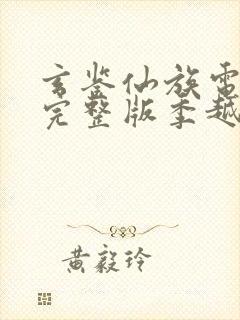 玄鉴仙族电
完整版季越
黄毅玲